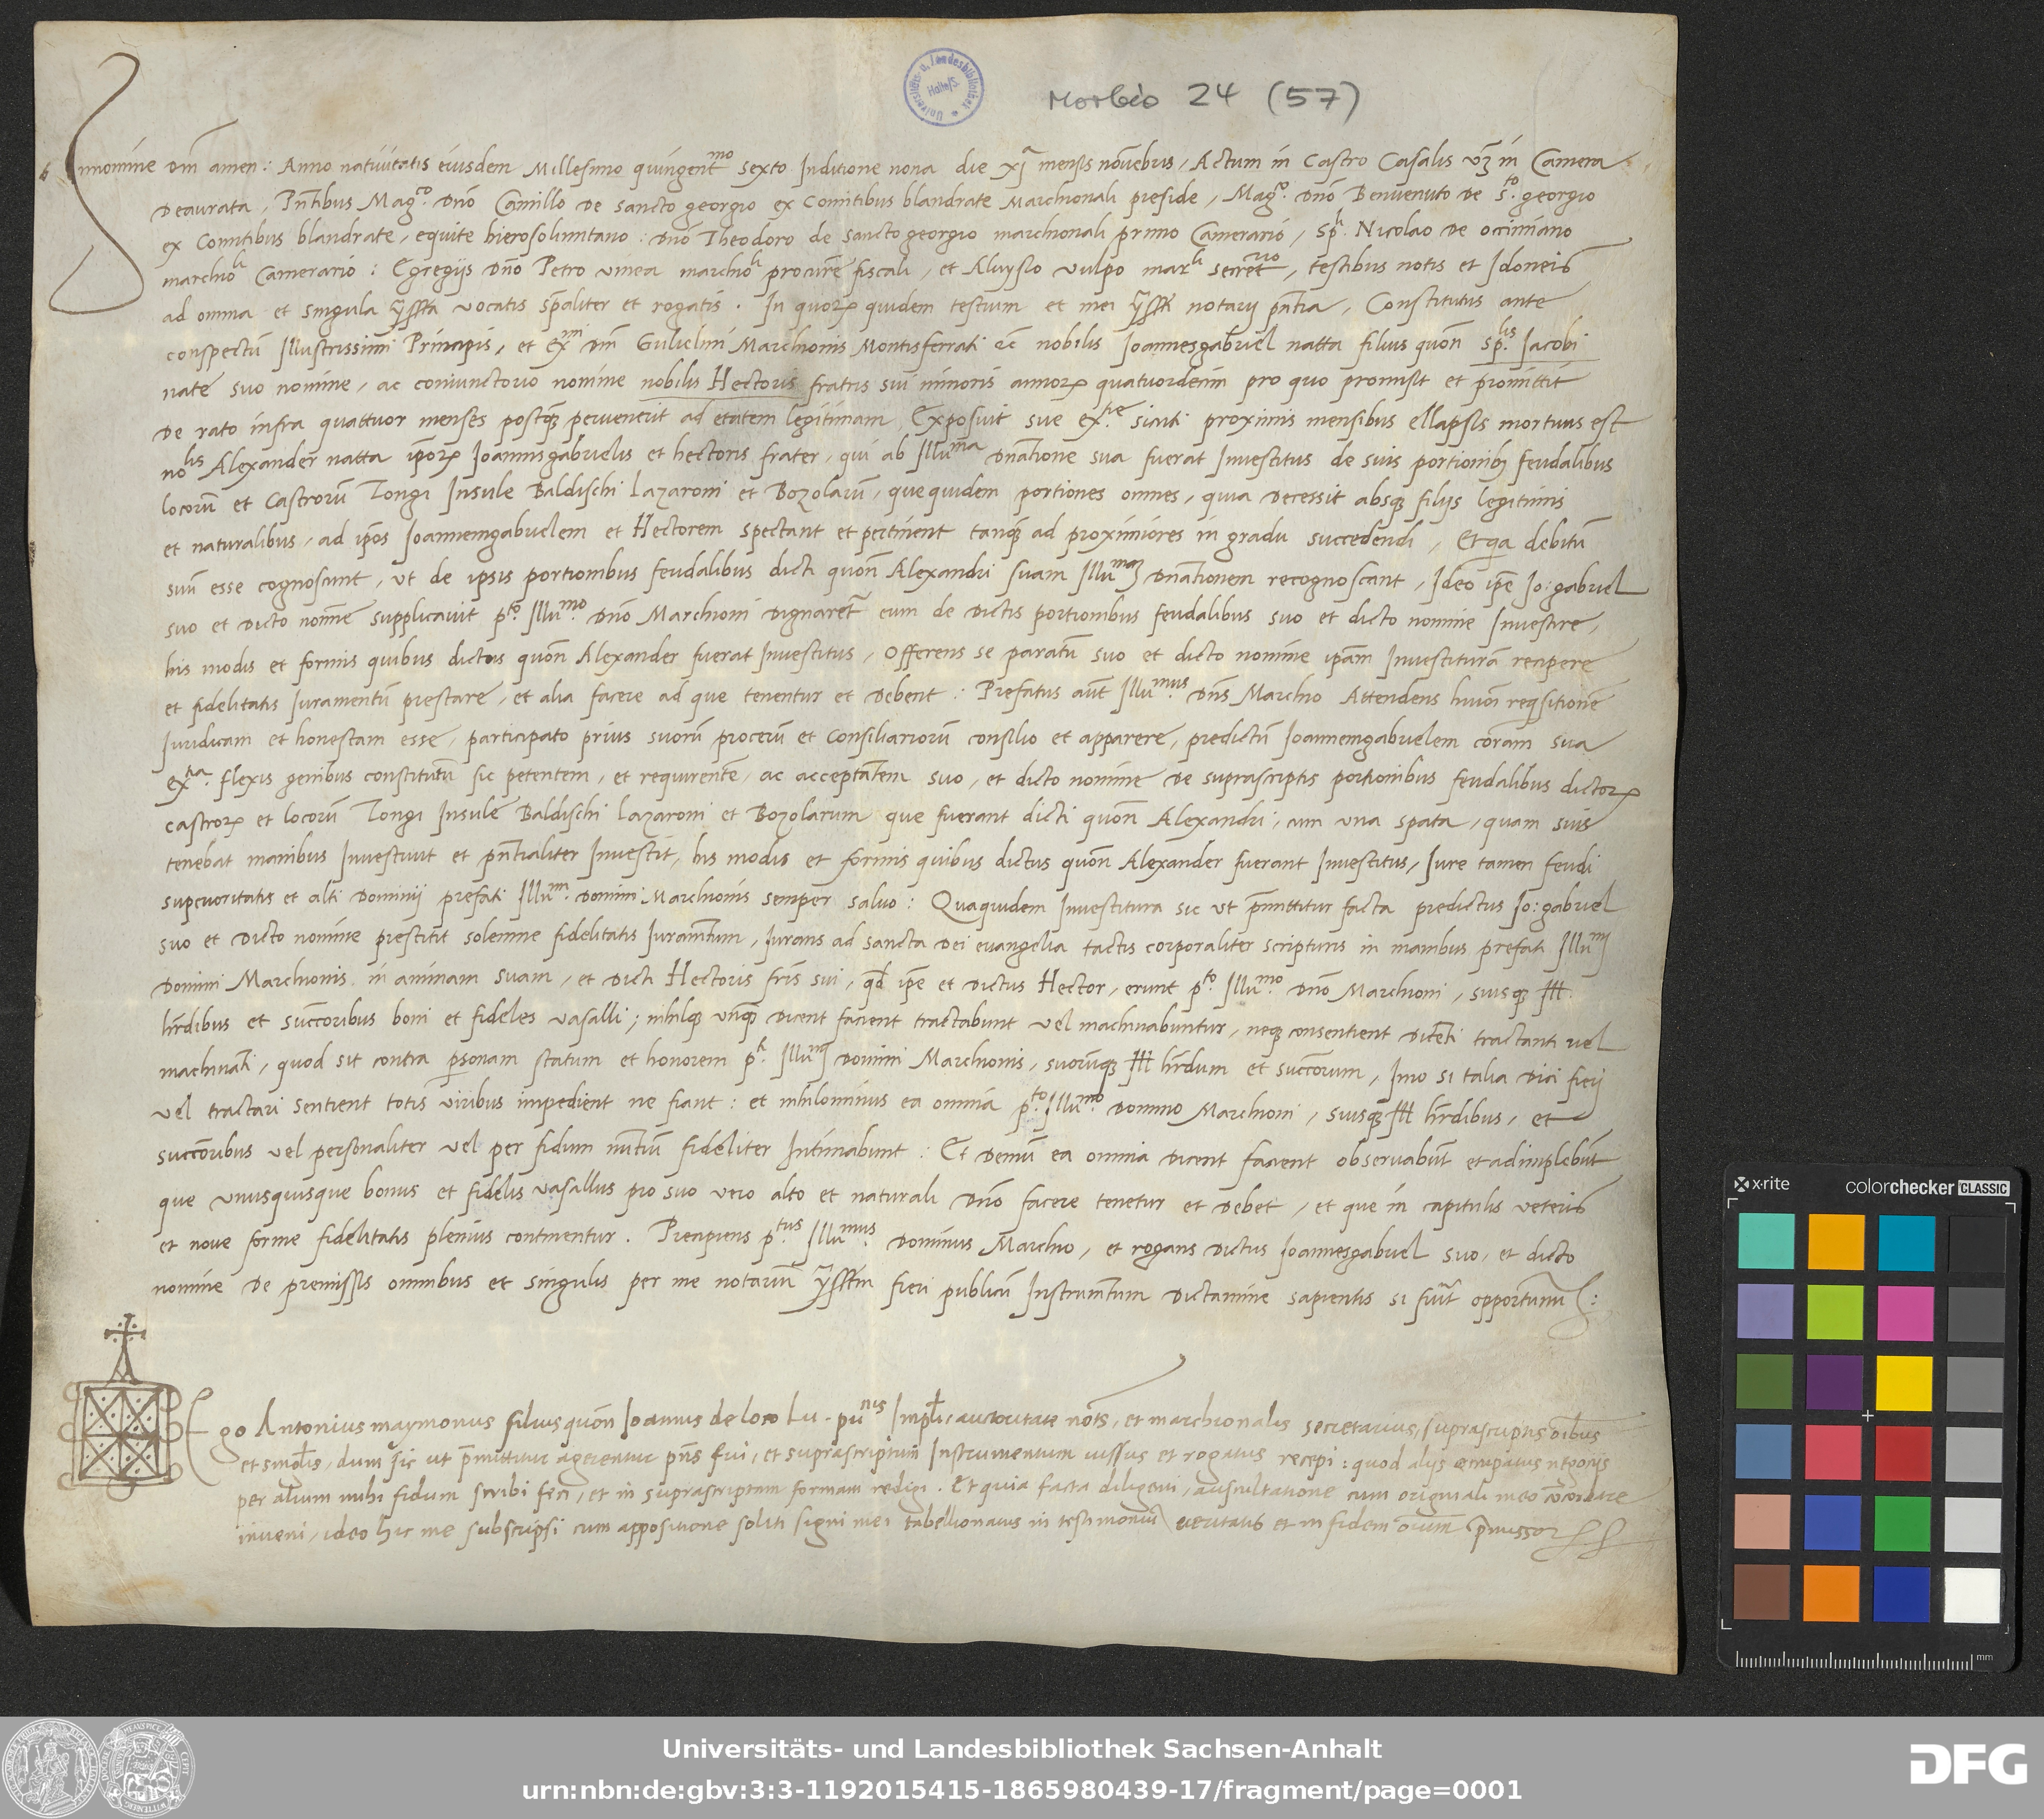 Universitäts- u. Landesbibliothek Halle/S.
Morbio 24 (57)
Innomine dnī amen: Anno natiuitatis eiusdem Millesimo quingentmo sexto Inditione nona die xj mensis nouēbris, Actum in Castro Casalis vz in Camera
Deaurata, Pn̄tibus Magco. Dnō Camillo De Sancto georgio ex Comitibus blandrate Marchionali preside, Magco. Dnō Benuenuto De Sto. georgio
ex Comitibus blandrate, equite hierosolimitano: Dnō Theodoro de Sancto georgio marchionali primo Camerario, Spli. Nicolao De occimiano
marchioli Camerario: Egregijs Dnō Petro vinea marchioli procure fiscali, et Aluysio vulpo marli secretrio, testibus notis et Idoneis
ad omnia et singula vocatis sp̄aliter et rogatis. In quorum quidem testium et mei notarij pn̄tia, Constitutus ante
conspectū Illustrissimi Principis, et Exmi Dnī Gulielmi Marchionis Montisferrati &c nobilis Joannesgabriel natta filius quon̄ splis. Jacobi
nate suo nomine, ac coniunctorio nomine nobilis Hectoris fratris sui minoris annorum quatuordecim pro quo promisit et promittit
De rato infra quattuor menses postquam peruenerit ad etatem legitimam Exposuit sue extie sicuti proximis mensibus ellapsis mortuus est
nolis Alexander natta ipōrum Joannisgabrielis et hectoris frater, qui ab Illuma Dnatione sua fuerat Inuestitus de suis portionibus feudalibus
locorū et Castrorū Tongi Insule Baldischi Lazaroni et Bozolarū, quequidem portiones omnes, quia Decessit absque filijs legitimis
et naturalibus, ad ipōs Joannemgabrielem et Hectorem spectant et pertinent tanquam ad proximiores in gradu succedendi, Et quia debitū
suū esse cognoscunt, ut de ipsis portionibus feudalibus dicti quon̄ Alexandri suam Illumam Dnationem recognoscant, Ideo ipē Jo: gabriel
suo et Dicto nomine supplicauit pto. Illumo. Dnō Marchioni Dignaretr eum de Dictis portionibus feudalibus suo et dicto nomine Inuestire,
his modis et formis quibus dictus quon̄ Alexander fuerat Inuestitus, Offerens se paratū suo et dicto nomine ipām Inuestiturā recipere
et fidelitatis Iuramentū prestare, et alia facere ad que tenentur et Debent: Prefatus aut̄ Illumus Dns Marchio Attendens huiuōi reqisitionē
Iuridicam et honestam esse, participato prius suorū procerū et Consiliariorū consilio et apparere, predictū Joannemgabrielem coram sua
extia. flexis genibus constitutū sic petentem, et requirentē, ac acceptātem suo, et dicto nomine De suprascriptis portionibus feudalibus dictorum
castrorum et locorū Tongi Insule Baldischi Lazaroni et Bozolarum que fuerant dicti quon̄ Alexandri, cum una spata, quam suis
tenebat manibus Inuestiuit et pn̄tialiter Inuestit, his modis et formis quibus dictus quon̄ Alexander fuerant Inuestitus, Iure tamen feudi
superioritatis et alti Dominij prefati Illumi. Domini Marchionis semper saluo: Quaquidem Inuestitura sic ut p̄mittitur facta predictus Jo: gabriel
suo et Dicto nomine prestitit solemne fidelitatis Iuramtum, Iurans ad sancta Dei euangelia tactis corporaliter scripturis in manibus prefati Illumi
Domini Marchionis in animam suam, et Dicti Hectoris fris sui, qd ipē et Dictus Hector, erunt pto. Illumo. Dnō Marchioni, suisque Ill.
hrdibus et succoribus boni et fideles vasalli; nihilque vnquam Dicent facient tractabunt vel machinabuntur, neque consentient Dicēti tractanti vel
machinati, quod sit contra personam statum et honorem pti. Illumi Domini Marchionis, suorūque Ill hrdum et succorum, Imo si talia Dici fieri
vel tractari sentient totis viribus impedient ne fiant: et nihilominus ea omnia pto. Illumo. Domino Marchioni, suisque Ill hrdibus, et
succoribus vel personaliter vel per fidum nūtiū fideliter Intimabunt: Et Demū ea omnia Dicent facient obseruabūt et adimplebūt
que vnusquisque bonus et fidelis vasallus pro suo vero alto et naturali Dnō facere tenetur et Debet, et que in capitulis veteris
et noue forme fidelitatis plenius continentur. Precipiens ptus. Illumus. Dominus Marchio, et rogans Dictus Joannesgabriel suo, et dicto
nomine De premissis omnibus et singulis per me notariū fieri publicū Instrumtum Dictamine sapientis si fuerit opportunū:
Ego Antonius maymonus filius quon̄ Joannis de loco Lu. pu Impli auctoritate nots, et marchionalis secretarius, suprascriptis oībus
et singlis, dum sic ut p̄mittitur agerentur pn̄s fui, et suprascriptum Instrumentum iussus et rogatus recepi: quod alijs occupatus negocijs
per alium mihi fidum scribi feci, et in suprascriptam formam redigi. Et quia facta diligenti, auscultatione cum originali meo cōcordare
inueni, ideo hic me subscripsi cum appositione soliti signi mei tabellionatus in testimoniū veritatis et in fidem oīum p̄missorum
x-rite
colorchecker CLASSIC
mm
Universitäts- und Landesbibliothek Sachsen-Anhalt
urn:nbn:de:gbv:3:3-1192015415-1865980439-17/fragment/page=0001
DFG